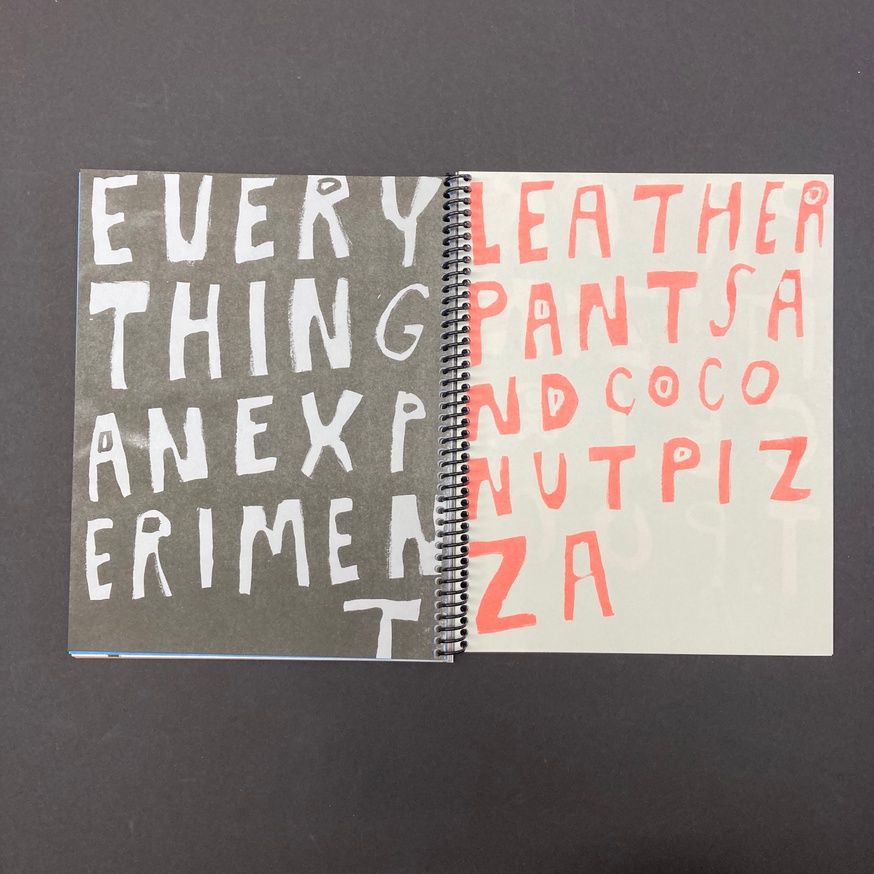 EVERY
THING
ANEXP
ERIMEN
T
LEATHER
PANTSA
ND COCO
NUTPIZ
ZA